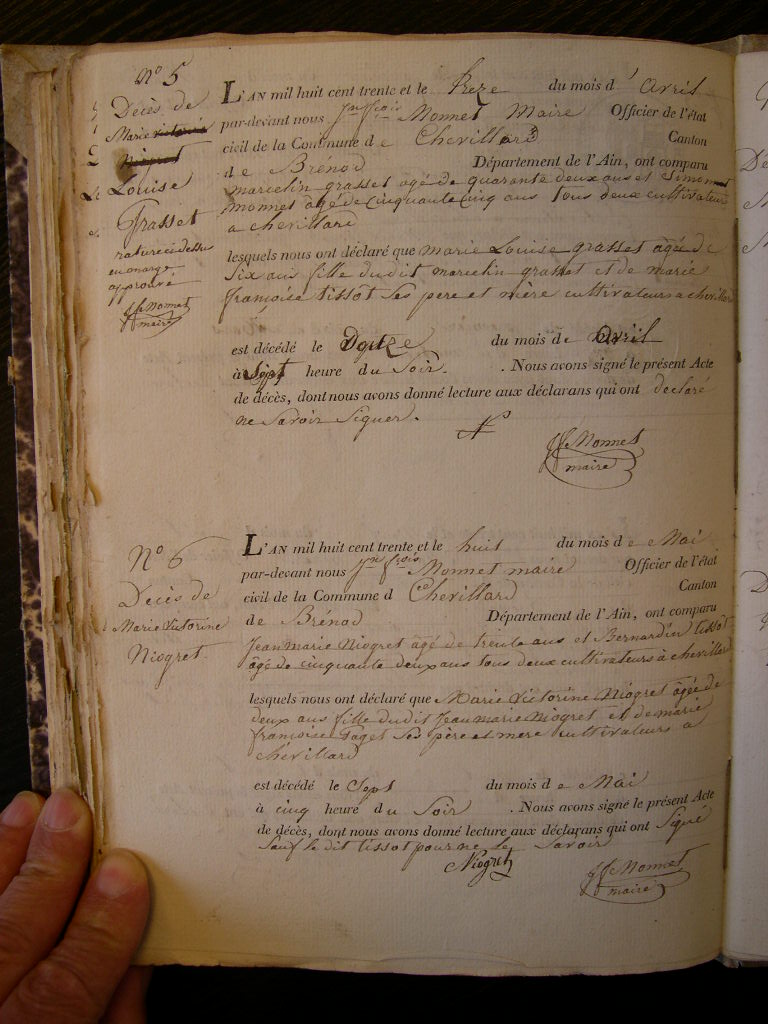 N° 5
Décès de
Marie victorine
Niogret
Louise
Grasset
rature ci dessu
en marge
approuvé
Jf Monnet
maire
L'AN mil huit cent trente et le treze du mois d' Avril
par-devant nous Jn fçois Monnet Maire Officier de l'état
civil de la Commune de Chevillard Canton
de Brénod Département de l'Ain, ont comparu
marcelin grasset agé de quarante deux ans et Simon
monnet agé de Cinquante Cinq ans tous deux cultivateurs
a chevillard
lesquels nous ont déclaré que marie Louise grasset agée de
Six ans fille dudit marcelin grasset et de marie
françoise tissot Ses pere et mère cultivateurs a chevillard
est décédé le Douze du mois de avril
à Sept heure du Soir. . Nous avons signé le présent Acte
de décès, dont nous avons donné lecture aux déclarans qui ont declaré
ne Savoir Signer.
Jf Monnet
maire
N° 6
Décès de
Marie Victorine
Niogret
L'AN mil huit cent trente et le huit du mois de Mai
par-devant nous Jn fçois Monnet maire Officier de l'état
civil de la Commune d Chevillard Canton
de Brénod Département de l'Ain, ont comparu
Jean Marie Niogret agé de trente ans et Bernardin tissot
agé de cinquante deux ans tous deux cultivateurs à chevillard
lesquels nous ont déclaré que Marie Victorine Niogret agée de
deux ans fille dudit Jean marie Niogret et de marie
françoise Paget Ses père et mere cultivateurs a
chevillard
est décédé le Sept du mois de Mai
à cinq heure du Soir . Nous avons signé le présent Acte
de décès, dont nous avons donné lecture aux déclarans qui ont Signé
Sauf le dit tissot pour ne le Savoir
Niogret
Jf Monnet
maire